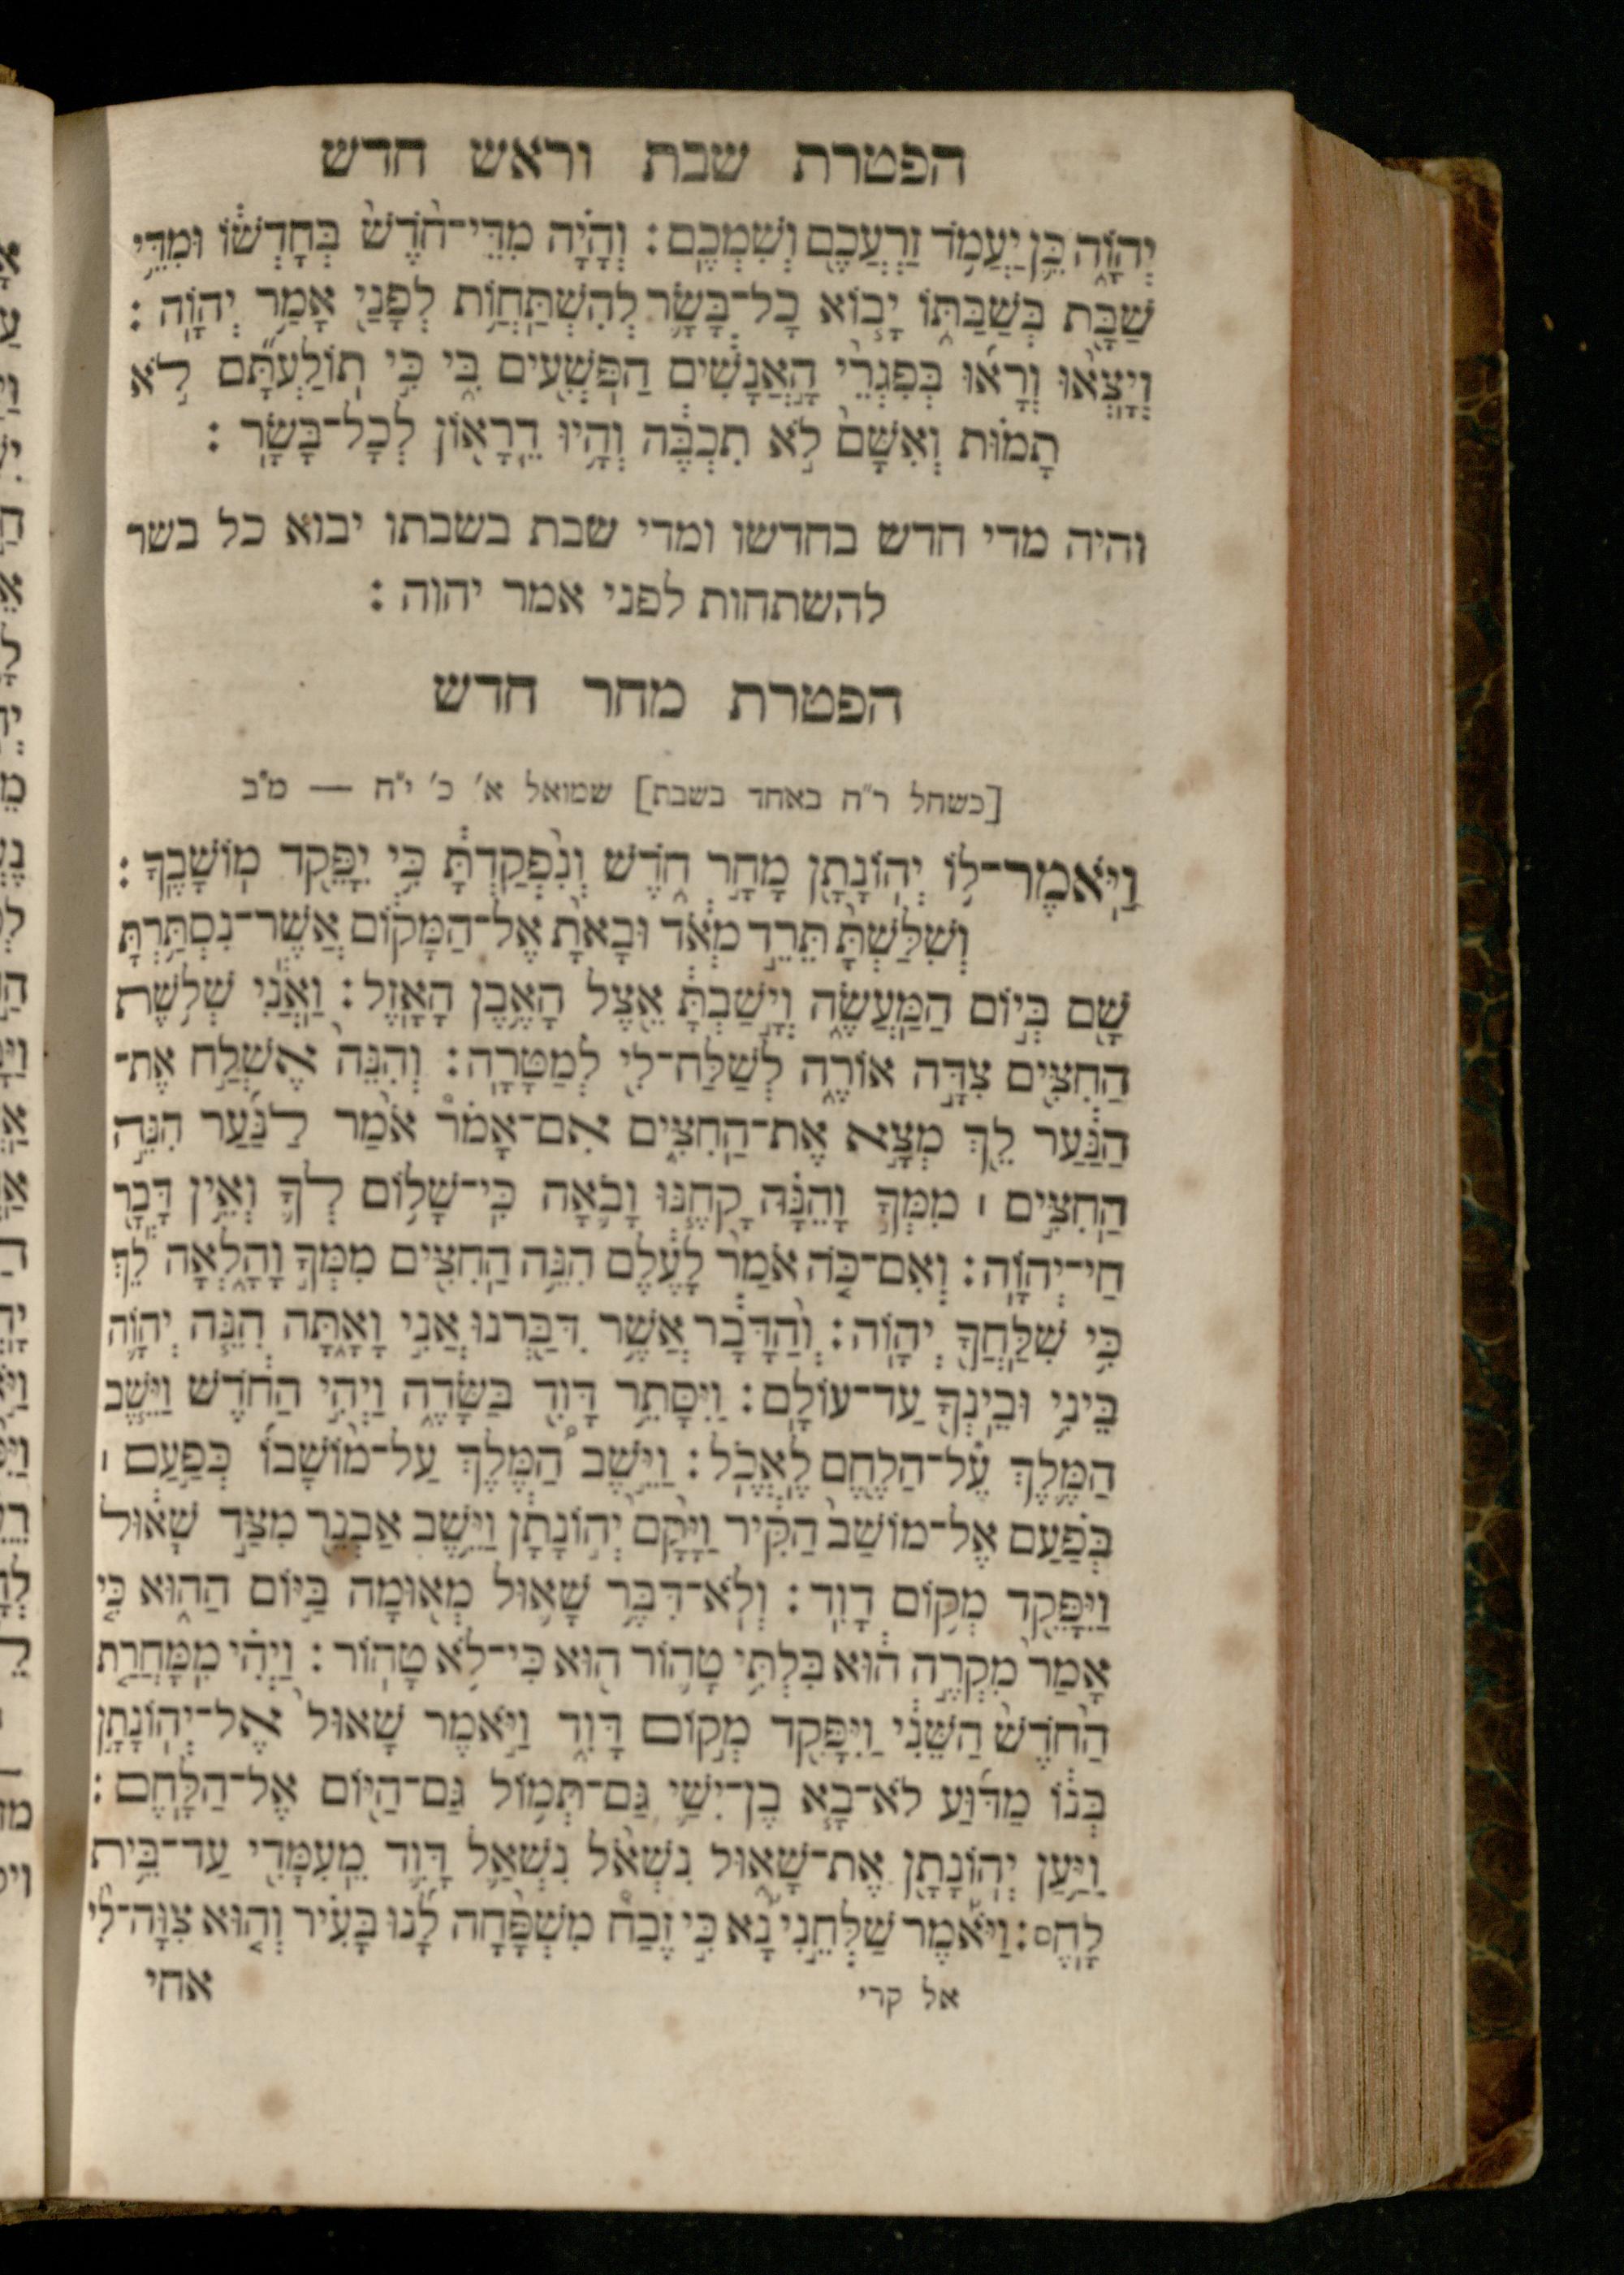 הפטרת שבת וראש חדש
יְהוָֹ֑ה כֵּ֛ן יַעֲמֹ֥ד זַרְעֲכֶ֖ם וְשִׁמְכֶֽם׃ וְהָיָ֗ה מִֽדֵּי־חֹ֙דֶשׁ֙ בְּחָדְשׁ֔וֹ וּמִדֵּ֥י
שַׁבָּ֖ת בְּשַׁבַּתּ֑וֹ יָב֧וֹא כָל־בָּשָׂ֛ר לְהִשְׁתַּֽחֲוֹ֥ת לְפָנַ֖י אָמַ֥ר יְהוָֹֽה׃
וְיָֽצְא֣וּ וְרָא֔וּ בְּפִגְרֵי֙ הָֽאֲנָשִׁ֔ים הַפֹּֽשְׁעִ֖ים בִּ֑י כִּ֣י תֽוֹלַעְתָּ֞ם לֹ֣א
תָמ֗וּת וְאִשָּׁם֙ לֹ֣א תִכְבֶּ֔ה וְהָי֥וּ דֵֽרָא֖וֹן לְכָל־בָּשָֽׂר׃
והיה מדי חדש בחדשו ומדי שבת בשבתו יבוא כל בשר
להשתחות לפני אמר יהוה׃
הפטרת מחר חדש
[כשחל ר״ח באחד בשבת] שמואל א׳ כ׳ י״ח — מ״ב
וַיֹּֽאמֶר־ל֥וֹ יְהֽוֹנָתָ֖ן מָחָ֣ר חֹ֑דֶשׁ וְנִ֨פְקַדְתָּ֔ כִּ֥י יִפָּקֵ֖ד מֽוֹשָׁבֶֽךָ׃
וְשִׁלַּשְׁתָּ֙ תֵּרֵ֣ד מְאֹ֔ד וּבָאתָ֙ אֶל־הַמָּק֔וֹם אֲשֶׁר־נִסְתַּ֥רְתָּ
שָּׁ֖ם בְּי֣וֹם הַֽמַּעֲשֶׂ֑ה וְיָ֣שַׁבְתָּ֔ אֵ֖צֶל הָאֶ֥בֶן הָאָֽזֶל׃ וַאֲנִ֕י שְׁלֹ֥שֶׁת
הַחִצִּ֖ים צִדָּ֣ה אוֹרֶ֑ה לְשַׁלַּח־לִ֖י לְמַטָּרָֽה׃ וְהִנֵּה֙ אֶשְׁלַ֣ח אֶת־
הַנַּ֔עַר לֵ֖ךְ מְצָ֣א אֶת־הַֽחִצִּ֑ים אִם־אָמֹר֩ אֹמַ֨ר לַנַּ֜עַר הִנֵּ֥ה
הַֽחִצִּ֣ים ׀ מִמְּךָ֣ וָהֵ֗נָּה קָחֶ֧נּוּ וָבֹ֛אָה כִּֽי־שָׁל֥וֹם לְךָ֛ וְאֵ֥ין דָּבָ֖ר
חַי־יְהוָֹֽה׃ וְאִם־כֹּ֤ה אֹמַר֙ לָעֶ֔לֶם הִנֵּ֥ה הַֽחִצִּ֖ים מִמְּךָ֣ וָהָ֑לְאָה לֵ֕ךְ
כִּ֥י שִׁלַּֽחֲךָ֖ יְהוָֹֽה׃ וְהַ֨דָּבָ֔ר אֲשֶׁ֥ר דִּבַּ֖רְנוּ אֲנִ֣י וָאָ֑תָּה הִנֵּ֧ה יְהוָֹ֛ה
בֵּינִ֥י וּבֵֽינְךָ֖ עַד־עוֹלָֽם׃ וַיִּסָּתֵ֥ר דָּוִ֖ד בַּשָּׂדֶ֑ה וַיְהִ֣י הַחֹ֔דֶשׁ וַיֵּ֧שֶׁב
הַמֶּ֛לֶךְ עַ֥ל־הַלֶּ֖חֶם לֶֽאֱכֹֽל׃ וַיֵּ֣שֶׁב הַ֠מֶּלֶךְ עַל־מ֨וֹשָׁב֜וֹ כְּפַ֣עַם ׀
בְּפַ֗עַם אֶל־מוֹשַׁב֙ הַקִּ֔יר וַיָּ֙קָם֙ יְה֣וֹנָתָ֔ן וַיֵּ֥שֶׁב אַבְנֵ֖ר מִצַּ֣ד שָׁא֑וּל
וַיִּפָּקֵ֖ד מְק֥וֹם דָּוִֽד׃ וְלֹֽא־דִבֶּ֥ר שָׁא֛וּל מְא֖וּמָה בַּיּ֣וֹם הַה֑וּא כִּ֤י
אָמַר֙ מִקְרֶ֣ה ה֔וּא בִּלְתִּ֥י טָה֛וֹר ה֖וּא כִּי־לֹ֥א טָהֽוֹר׃ וַיְהִ֗י מִֽמָּחֳרַ֤ת
הַחֹ֙דֶשׁ֙ הַשֵּׁנִ֔י וַיִּפָּקֵ֖ד מְק֣וֹם דָּוִ֑ד וַיֹּ֤אמֶר שָׁאוּל֙ אֶל־יְהֽוֹנָתָ֣ן
בְּנ֔וֹ מַדּ֜וּעַ לֹא־בָ֧א בֶן־יִשַׁ֛י גַּם־תְּמ֥וֹל גַּם־הַיּ֖וֹם אֶל־הַלָּֽחֶם׃
וַיַּ֥עַן יְהֽוֹנָתָ֖ן אֶת־שָׁא֑וּל נִשְׁאֹ֨ל נִשְׁאַ֥ל דָּוִ֛ד מֵֽעִמָּדִ֖י עַד־בֵּ֥ית
לָֽחֶם׃ וַיֹּ֡אמֶר שַׁלְּחֵ֣נִי נָ֡א כִּ֣י זֶבַח֩ מִשְׁפָּחָ֨ה לָ֜נוּ בָּעִ֗יר וְה֤וּא צִוָּֽה־לִי֙
אל קרי
אחי